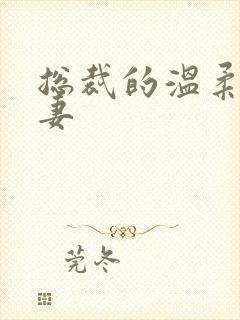 总裁的温柔
妻
莞冬